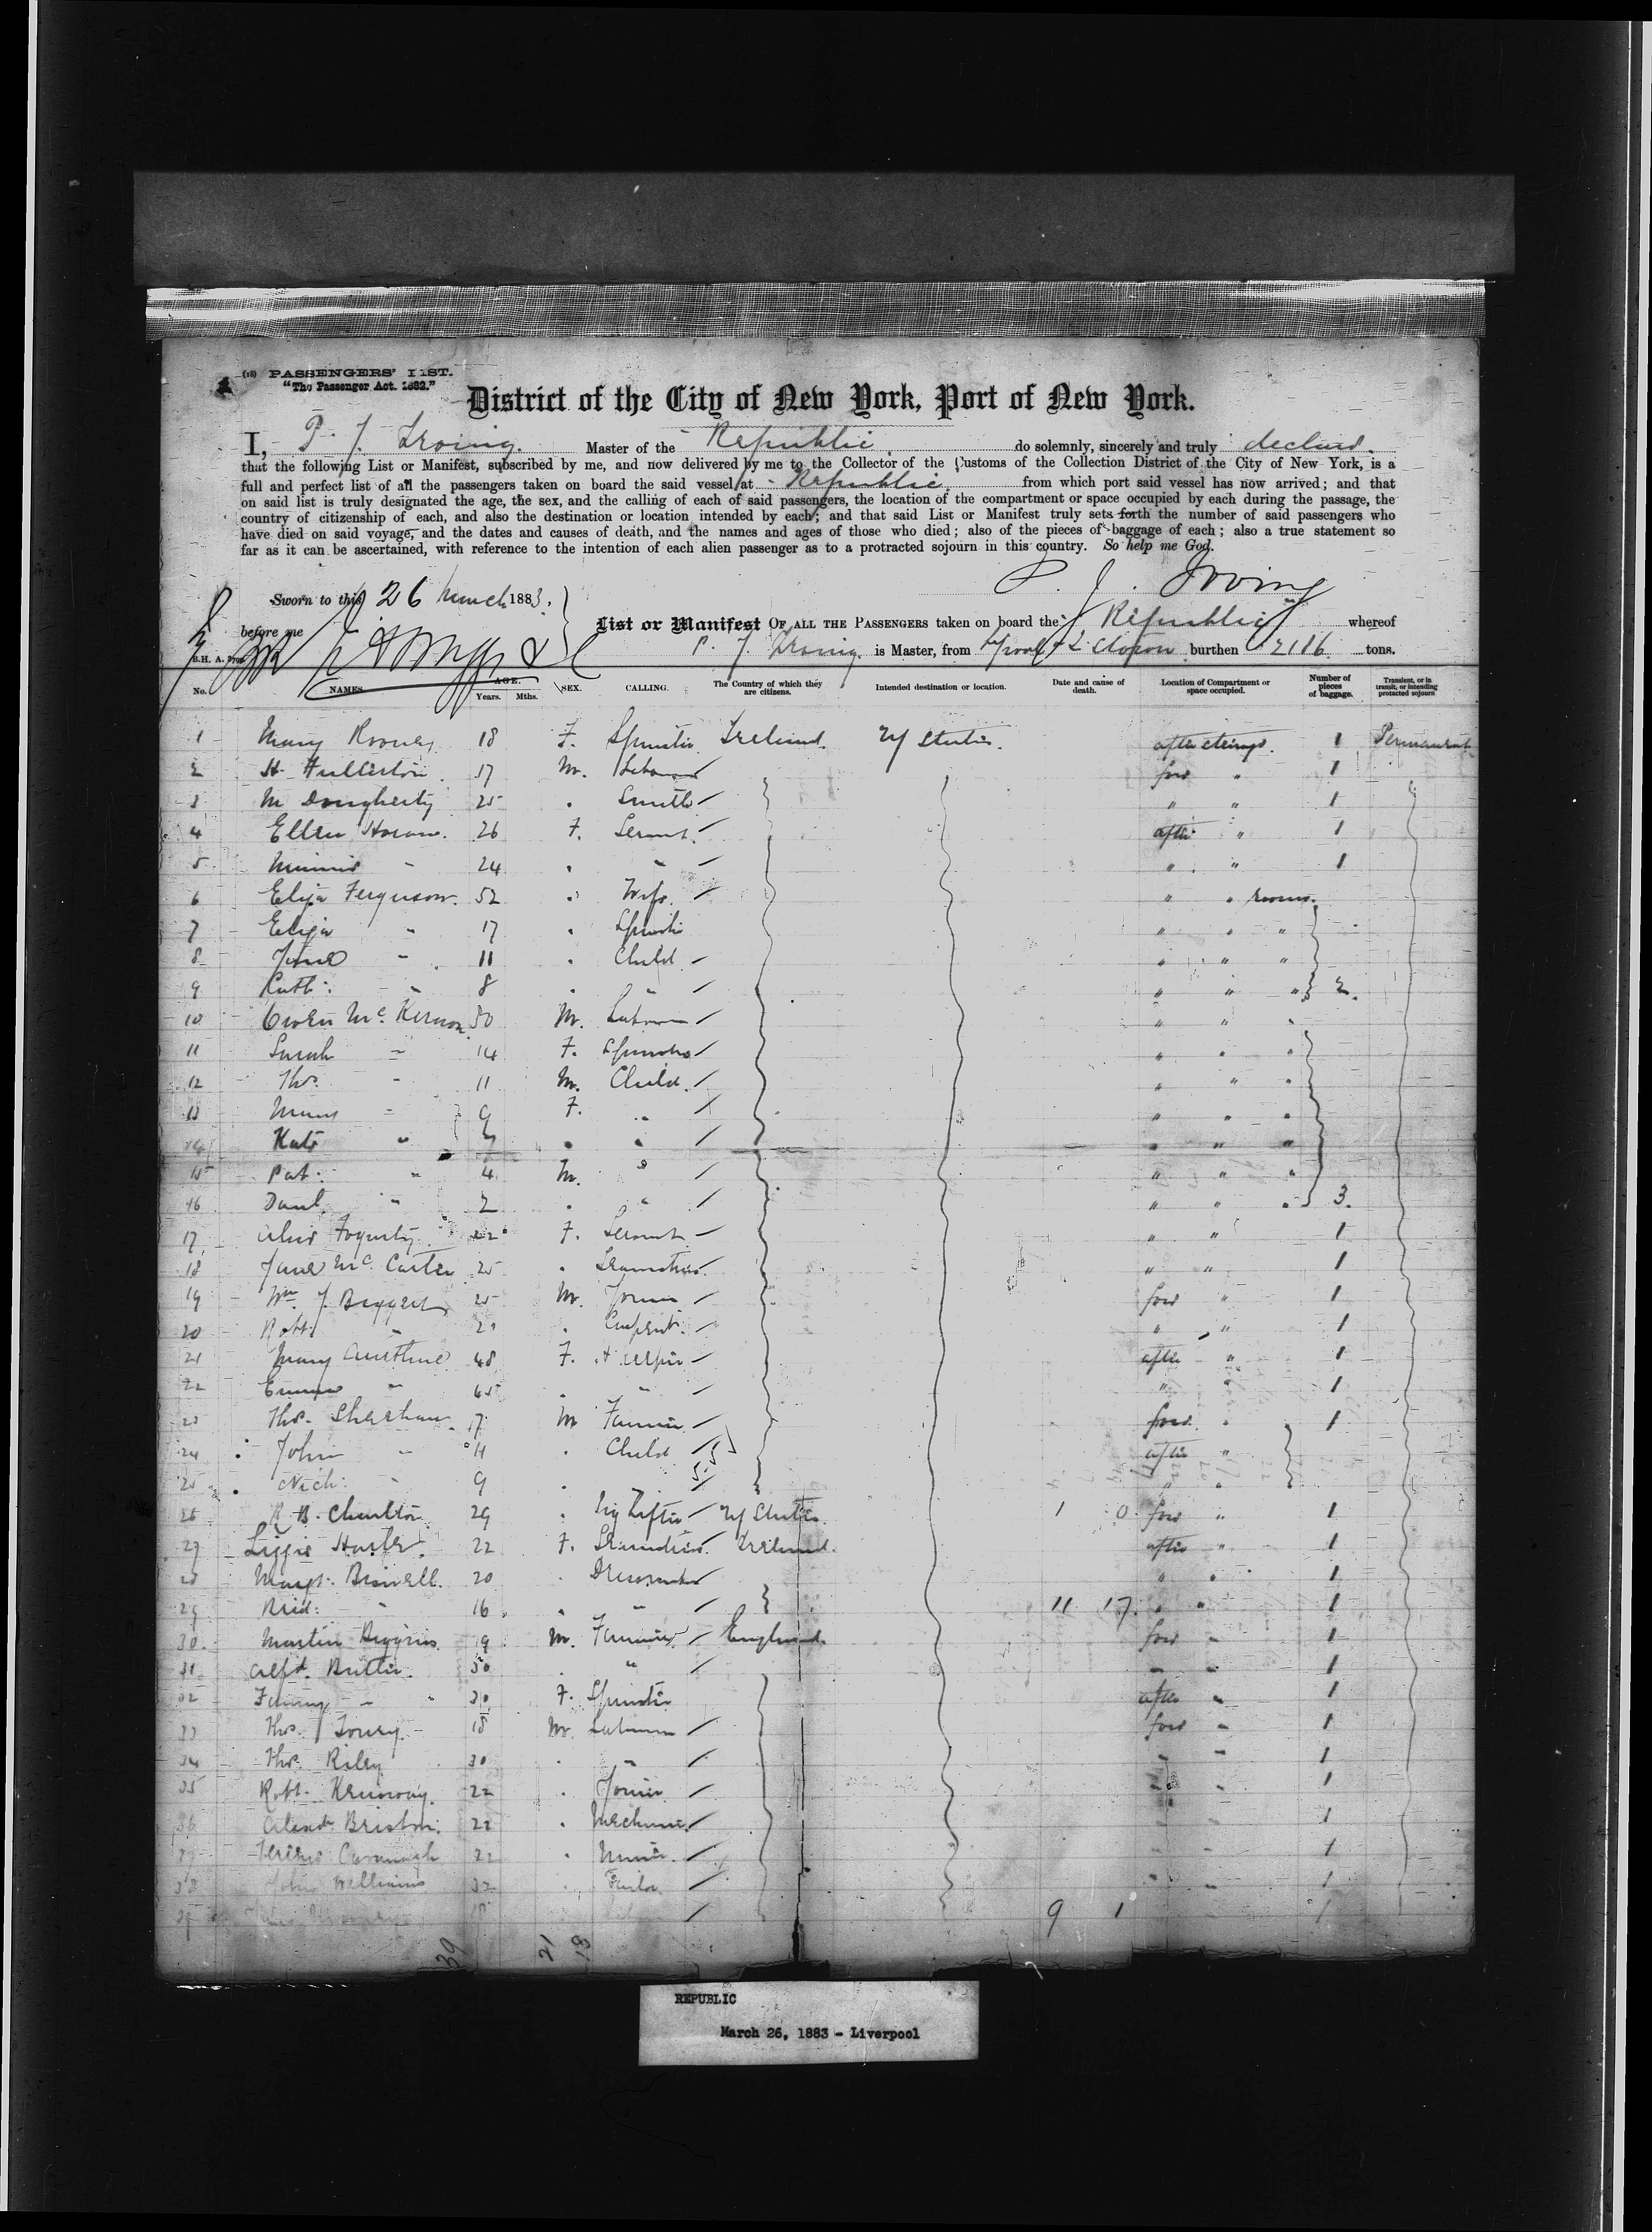 (18) PASSENGERS' LIST.
"The Passenger Act. 1882."
District of the City of New York, Port of New York.
I, P. J. Irving. Master of the Republic do solemnly, sincerely and truly declare
that the following List or Manifest, subscribed by me, and now delivered by me to the Collector of the Customs of the Collection District of the City of New York, is a
full and perfect list of all the passengers taken on board the said vessel at Republic from which port said vessel has now arrived; and that
on said list is truly designated the age, the sex, and the calling of each of said passengers, the location of the compartment or space occupied by each during the passage, the
country of citizenship of each, and also the destination or location intended by each; and that said List or Manifest truly sets forth the number of said passengers who
have died on said voyage, and the dates and causes of death, and the names and ages of those who died; also of the pieces of baggage of each; also a true statement so
far as it can be ascertained, with reference to the intention of each alien passenger as to a protracted sojourn in this country. So help me God.
P. J. Irving
Sworn to this 26 March 1883,
List or Manifest OF ALL THE PASSENGERS taken on board the Republic whereof
before me
P. J. Irving. is Master, from L'pool & burthen 2186 tons.
B.H. A.
No. NAMES AGE. Years. Mths. SEX. CALLING. The Country of which they are citizens. Intended destination or location. Date and cause of death. Location of Compartment or space occupied. Number of pieces of baggage. Transient, or in transit, or intending protracted sojourn
1 Mary Rooney 18 F. Spinster Ireland. U States. after steerage. 1 Permanent
2 H. Fullerton 17 M. Labourer for'd " 1
3 M Dougherty 25 " Smith " " 1
4 Ellen Horan. 26 F. Servant. after " 1
5 Minnie " 24 " " " " 1
6 Eliza Ferguson. 52 " Wife. " " rooms.
7 Eliza " 17 " Spinster " " "
8 Jane " 11 " Child " " "
9 Ruth: " 8 " " " " " 2.
10 Owen McKernon 50 M. Labourer " " "
11 Sarah " 14 F. Spinster " " "
12 Thos. " 11 M. Child. " " "
13 Mary " 9 F. " " " "
14 Kate " 7 " " " " "
15 Pat: " 4 M. " " " "
16 Danl. " 2 " " " " " 3.
17 Alice Fogarty 22 F. Servant " " 1
18 Jane McCarter 25 " Seamstress. " " 1
19 Wm J Biggert 25 M. Joiner for'd " 1
20 Robt: " " Carpentr. " " 1
21 Mary 48 F. after " 1
22 Emma " 45 " " " " 1
23 Thos. Sheehan 17 M Farmer for'd " 1
24 John " 11 " Child after "
25 Mich: " 9 " " "
26 R B. Charlton 29 " U States. 1 0 for'd " 1
27 Lizzie 22 F. Seamstress. Ireland. after " 1
28 Margt. 20 " Dressmaker " " 1
29 Brid: " 16 " " 11 17. " " 1
30 Martin Higgins 19 M. Farmer England. for'd " 1
31 Alfd. Butler 30 " " " " 1
32 Fanny " 30 F. Spinster after " 1
33 Thos. 18 M. Labourer for'd " 1
34 Thos. Riley 30 " " " " 1
35 Robt. Kennway. 22 " Joiner " " 1
36 Alexdr. Briston. 22 " Mechanic. " " 1
37 Cavanagh 22 " Miner. " " 1
38 John Williams 32 Tailor. " " 1
39 18 9 1
39 21 18
REPUBLIC
March 26, 1883 - Liverpool